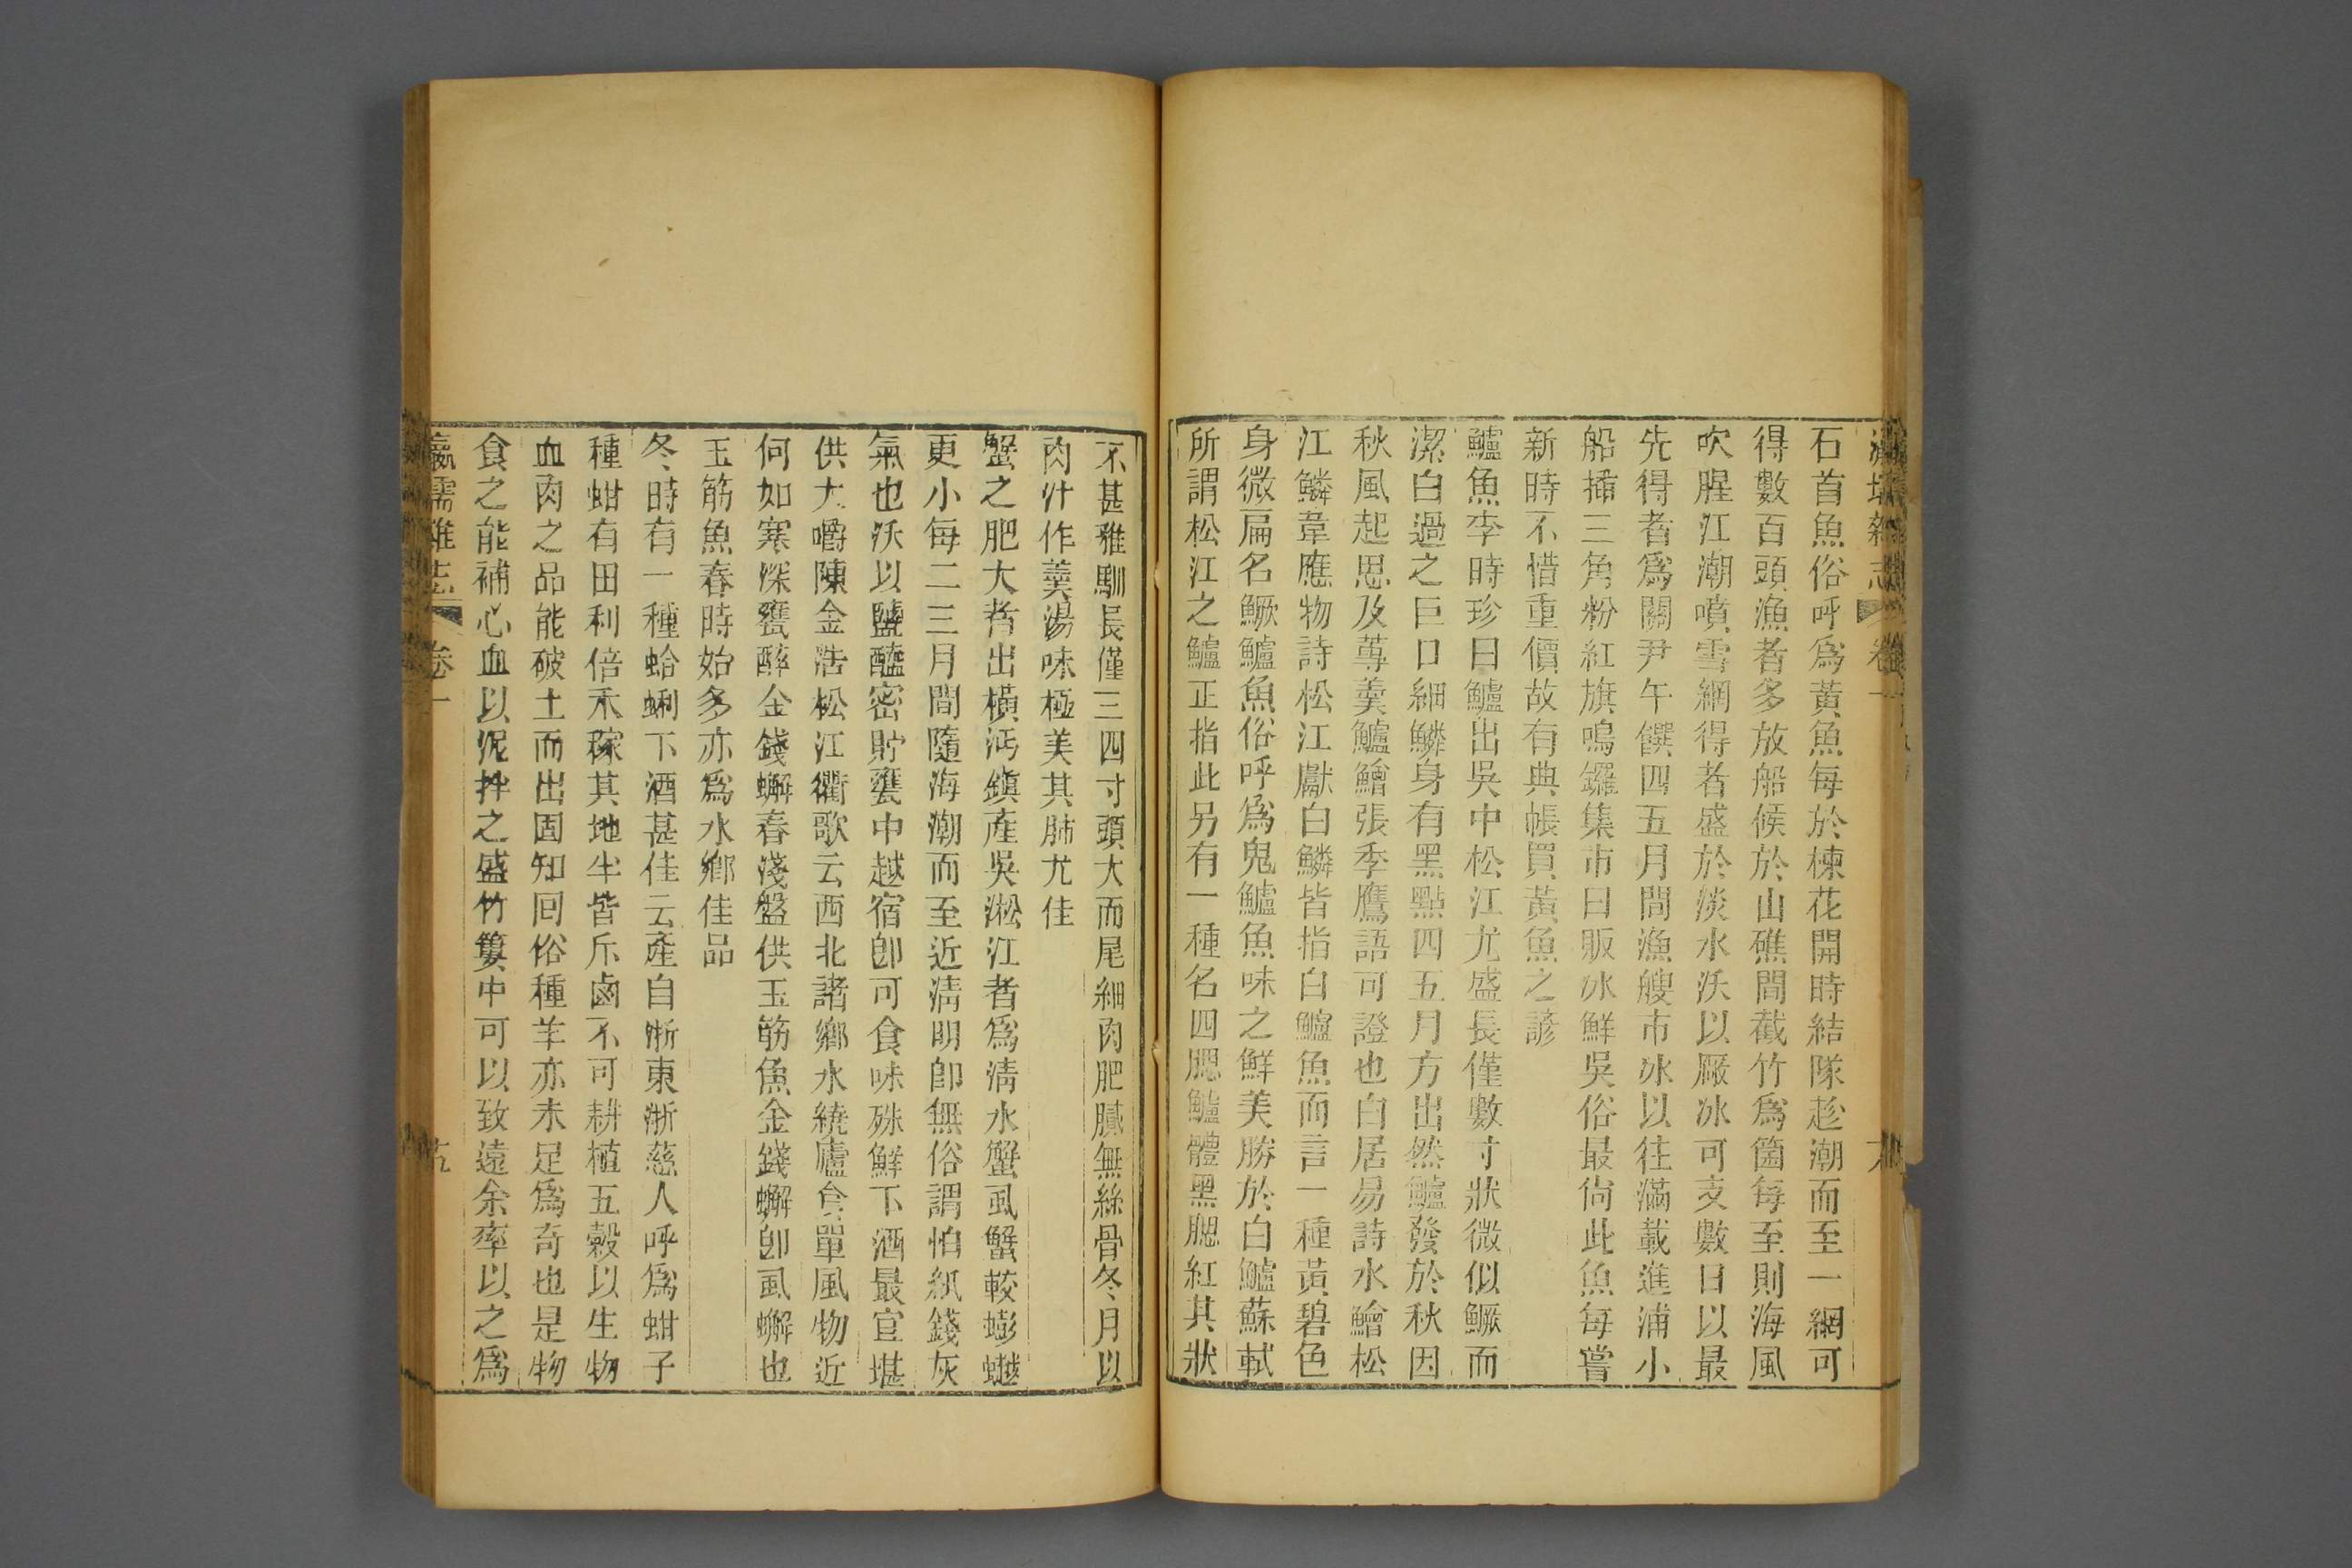 石首魚俗呼爲黃魚每於楝花開時結隊趁潮而至一網可
得數百頭漁者多放船候於山礁間截竹爲筩每至則海風
吹腥江潮噴雪網得者盛於淡水沃以厰冰可支數日以最
先得者爲關尹午饌四五月間漁艘市冰以往滿載進浦小
船插三角粉紅旗鳴鑼集市曰販冰鮮吳俗最尙此魚每嘗
新時不惜重價故有典帳買黃魚之諺
鱸魚李時珍曰鱸出吳中松江尤盛長僅數寸狀微似鱖而
潔白過之巨口細鱗身有黑點四五月方出然鱸發於秋因
秋風起思及蓴羹鱸鱠張季鷹語可證也白居易詩水鱠松
江鱗韋應物詩松江獻白鱗皆指白鱸魚而言一種黃碧色
身微扁名鱖鱸魚俗呼爲鬼鱸魚味之鮮美勝於白鱸蘇軾
所謂松江之鱸正指此另有一種名四腮鱸體黑腮紅其狀
不甚雅馴長僅三四寸頭大而尾細肉肥膩無絲骨冬月以
肉汁作羹湯味極美其肺尤佳
蟹之肥大者出橫沔鎭產吳淞江者爲淸水蟹虱蟹較蟛蚏
更小每二三月間隨海潮而至近淸明卽無俗謂怕紙錢灰
氣也沃以鹽醯密貯甕中越宿卽可食味殊鮮下酒最宜堪
供大嚼陳金浩松江衢歌云西北諸鄉水繞廬食單風物近
何如寒深甕醉金錢蠏春淺盤供玉筋魚金錢蠏卽虱蠏也
玉筋魚春時始多亦爲水鄉佳品
冬時有一種蛤蜊下酒甚佳云產自浙東浙慈人呼爲蚶子
種蚶有田利倍禾稼其地半皆斥鹵不可耕植五穀以生物
血肉之品能破土而出固知回俗種羊亦未足爲奇也是物
食之能補心血以泥拌之盛竹簍中可以致遠余率以之爲
瀛壖雜志 卷一